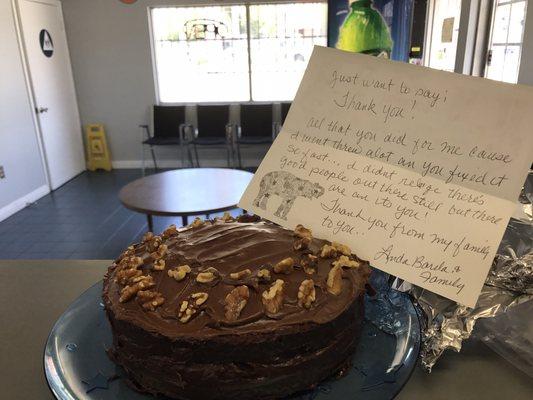 Just want to say!
Thank you!
all that you did for me cause
I went threw alot an you fixed it
so fast... I didnt realize theres
good people out there still but there
are an its you!
Thank you from my family
to you..
Linda Barela &
Family